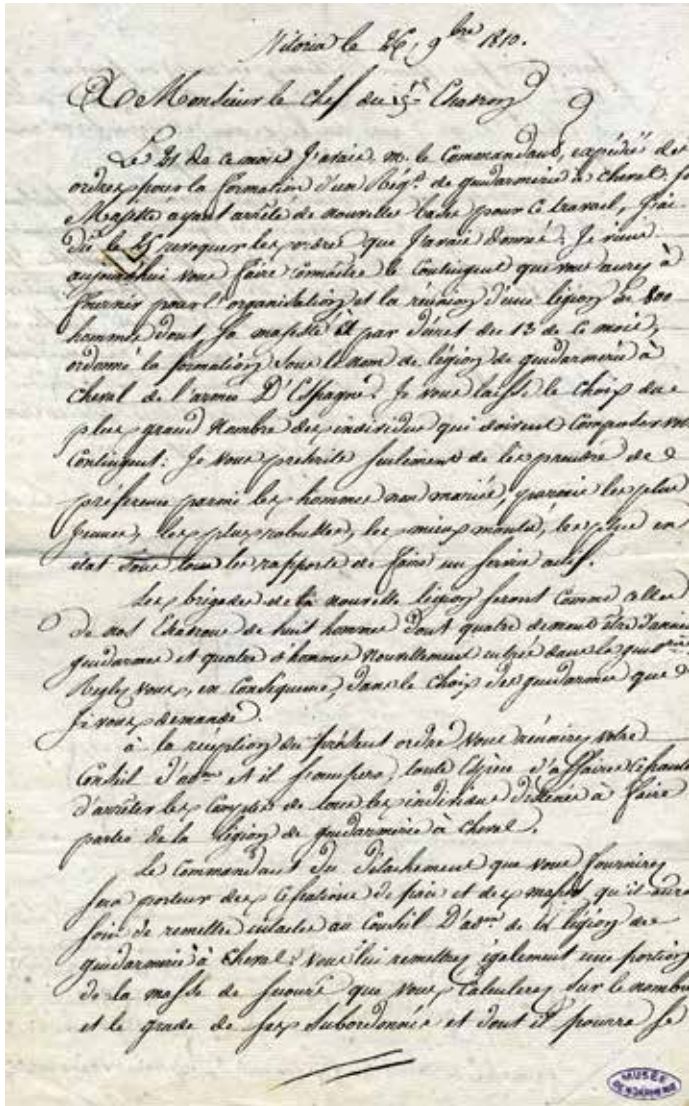 Vitoria le 26, 9bre 1810.
A Monsieur le chef du 15e Escadron
Le 21 de ce mois J'avais, m. le Commandant, expédié des
ordres pour la formation d'un Régt. de gendarmerie à cheval. Sa
Majesté ayant arrêté de nouvelles bases pour ce travail, J'ai
dû le 25 revoquer les ordres que J'avais donné. Je viens
aujourd'hui vous faire connaitre le Contingent que vous aurez à
fournir pour l'organisation et la réunion d'une légion de 800
hommes dont Sa majesté à par décret du 13 de ce mois,
ordonné la formation sous le nom de légion de gendarmerie à
cheval de l'armée D'Espagne. Je vous laisse le choix du
plus grand Nombre des individus qui doivent Composer votre
Contingent. Je vous prescrits seulement de les prendre de
préférence parmi les hommes non mariés, parmi les plus
jeunes, les plus robustes, les mieux montés, les plus en
état sous tous les rapports de faire un service actif.
Les brigades de la nouvelle légion seront comme celles
de nos Escadrons de huit hommes dont quatre devront être d'anciens
gendarmes et quatre d'hommes nouvellement entrés dans la gendrie
Reglez vous, en Conséquence, dans le choix des gendarmes que
Je vous demande.
à la réception du présent ordre vous réunirez votre
Conseil d'adon et il s'occupera, toute Espèce d'affaire Cessante
d'arrêter les Comptes de tous les individus destinés à faire
partie de la légion de gendarmerie à cheval.
Le Commandant du Détachement que vous fournirez
sera porteur des Cessations de paie et des masses qu'il aura
soin de remettre intactes au Conseil D'adon de la légion de
gendarmerie à cheval. Vous lui remettrez également une portion
de la masse de secours que vous Calculerez sur le nombre
et le grade de ses Subordonnés et dont il pourra se
MUSÉE
GENDARMERIE